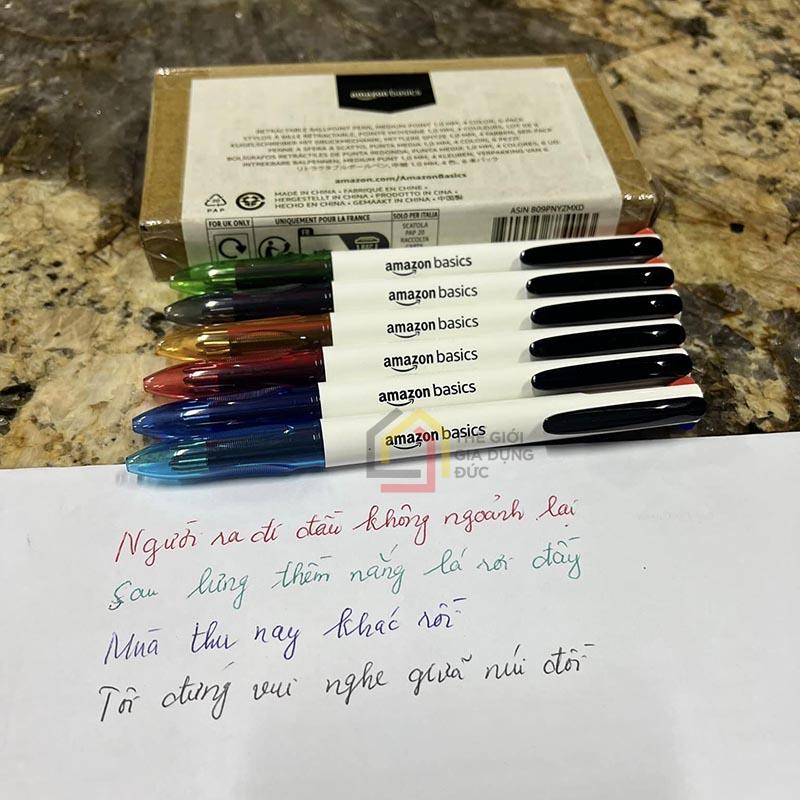 amazon basics
RETRACTABLE BALLPOINT PENS, MEDIUM POINT 1.0 MM, 4 COLOR, 6-PACK
STYLOS À BILLE RÉTRACTABLE, POINTE MOYENNE 1,0 MM, 4 COULEURS, LOT DE 6
KUGELSCHREIBER MIT DRUCKMECHANIK, MITTLERE SPITZE 1,0 MM, 4 FARBEN, 6ER-PACK
PENNE A SFERA A SCATTO, PUNTA MEDIA 1,0 MM, 4 COLORI, 6 PEZZI
BOLÍGRAFOS RETRÁCTILES DE PUNTA REDONDA, PUNTA MEDIA 1,0 MM, 4 COLORES, 6 UD.
INTREKBARE BALPENNEN, MEDIUM PUNT 1,0 MM, 4 KLEUREN, VERPAKKING VAN 6
amazon.com/AmazonBasics
MADE IN CHINA • FABRIQUÉ EN CHINE •
HERGESTELLT IN CHINA • PRODOTTO IN CINA •
HECHO EN CHINA • GEMAAKT IN CHINA • 中国製
PAP
ASIN B09PNYZMXD
FOR UK ONLY
UNIQUEMENT POUR LA FRANCE
FR
SOLO PER ITALIA
SCATOLA
PAP 20
RACCOLTA
CARTA
amazon basics
amazon basics
amazon basics
amazon basics
amazon basics
amazon basics
THẾ GIỚI
GIA DỤNG
ĐỨC
Người ra đi đầu không ngoảnh lại
Sau lưng thềm nắng lá rơi đầy
Mùa thu nay khác rồi
Tôi đứng vui nghe giữa núi đồi